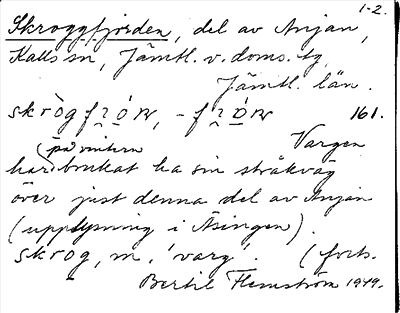 1-2.
Skroggfjorden, del av Anjan,
Kalls sn, Jämtl. v. doms. tg,
Jämtl. län.
161.
Vargen
(på vintern
har brukat ha sin stråkväg
över just denna del av Anjan
(upplysning i Äsingen).
skrog, m, 'varg'. (forts.
Bertil Flemström 1949.